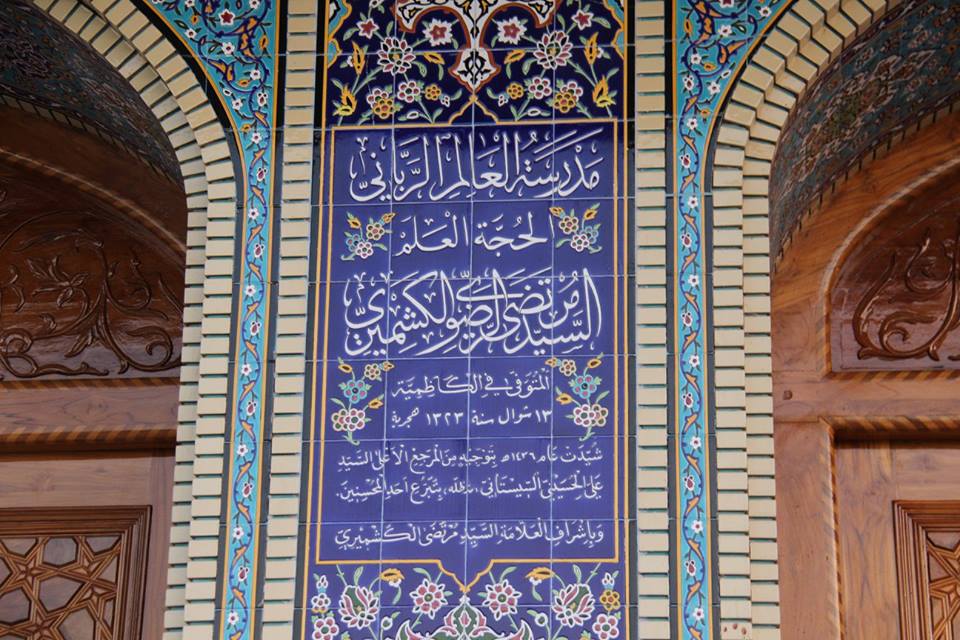 مَدْرَسَةُ العَالِمِ الرَّبَّانِي
الحُجَّة العَلَم
السَّيِّد مُرْتَضَى الرَّضَوِي الكَشْمِيرِي
المُتَوَفَّى فِي الكَاظِمِيَّة
١٣ شوال سنة ١٣٢٣ هجرية
شُيِّدَتْ عَام ١٤٣٦هـ بِتَوْجِيهٍ مِنَ المَرْجِعِ الأَعْلَى السَّيِّدِ
عَلِيّ الحُسَيْنِيّ السِّيسْتَانِي، دَامَ ظِلُّه، بِتَبَرُّعِ أَحَدِ المُحْسِنِينَ.
وَبِإِشْرَافِ العَلَّامَةِ السَّيِّدِ مُرْتَضَى الكَشْمِيرِي